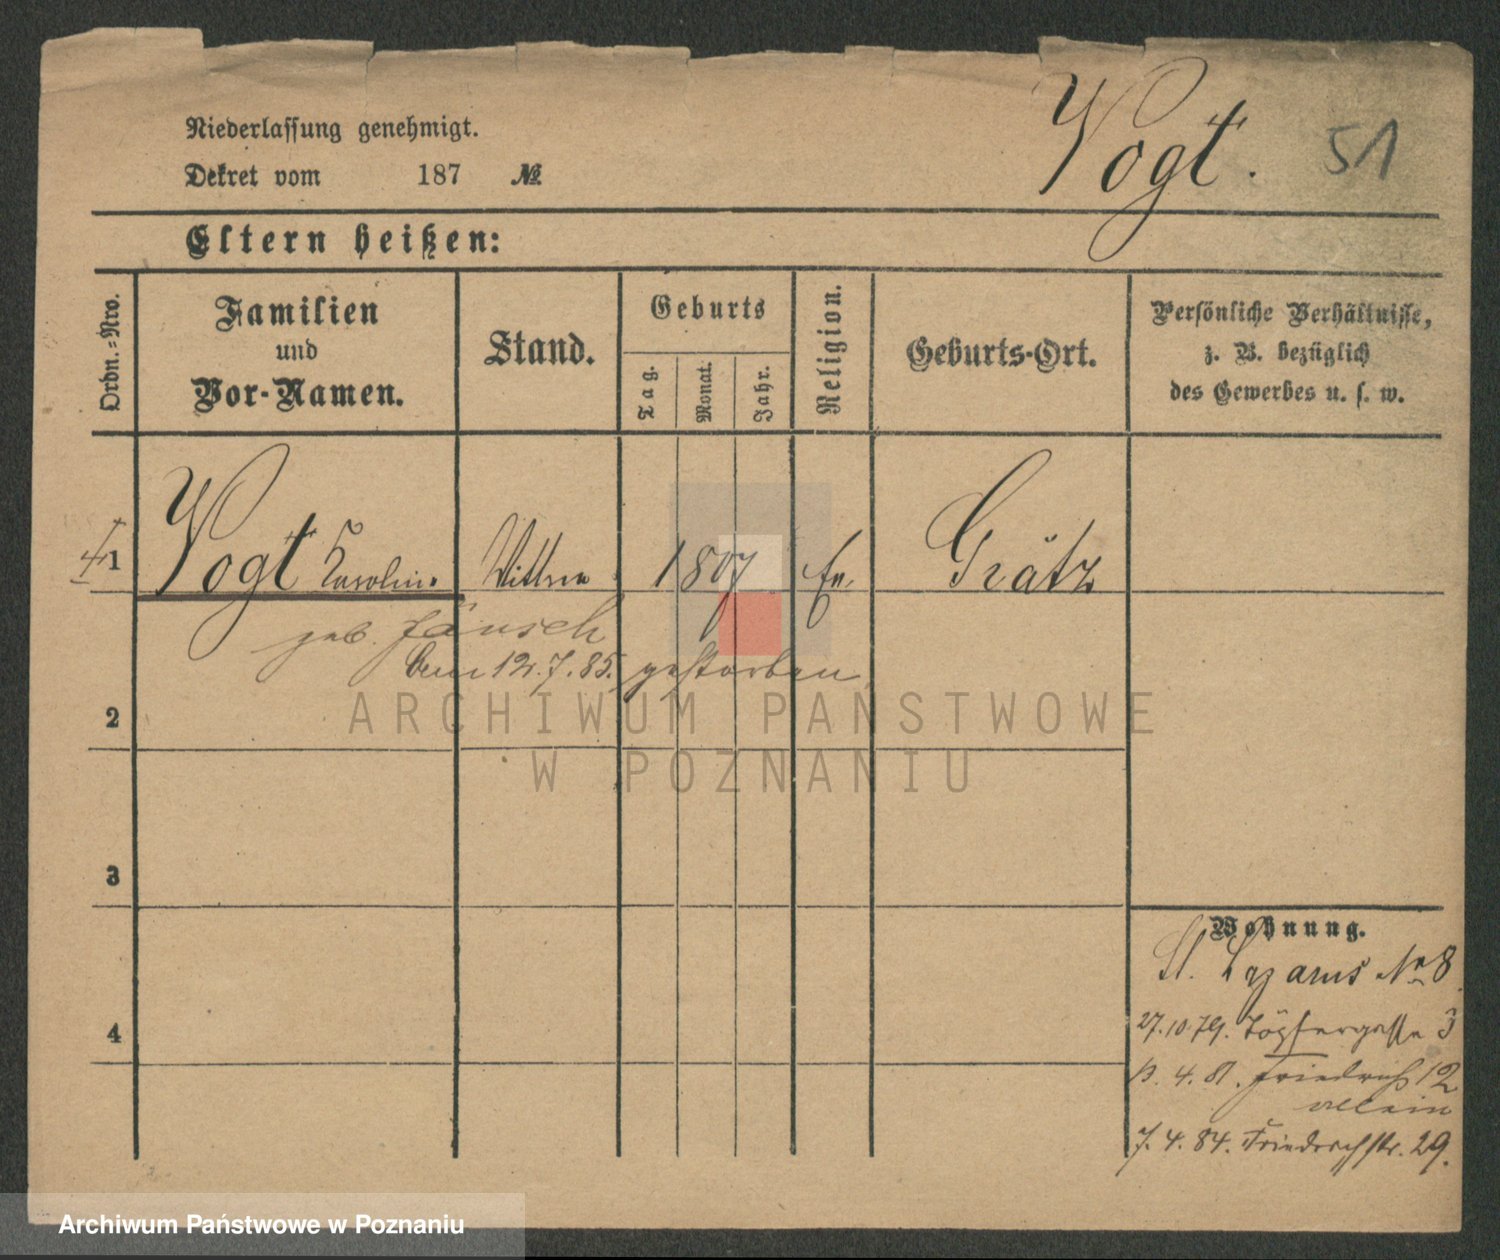 Vogt. 51
Niederlassung genehmigt.
Dekret vom 187 №
Eltern heißen:
Ordn.=Nro.
Familien
und
Vor-Namen.
Stand.
Geburts
Tag.
Monat.
Jahr.
Religion.
Geburts-Ort.
Persönliche Verhältnisse,
z. B. bezüglich
des Gewerbes u. s. w.
1 Vogt Karolin. Wittwe 1807 Ev. Grätz
geb. Jänsch
Am 12.7.85. gestorben
2
3
4
Wohnung.
St. Lazarus No 8
27.10.79. Töpfergasse 3
4. 81. Friedrich 12
allein
7.4.84. Friedrichstr. 29.
ARCHIWUM PAŃSTWOWE
W POZNANIU
Archiwum Państwowe w Poznaniu